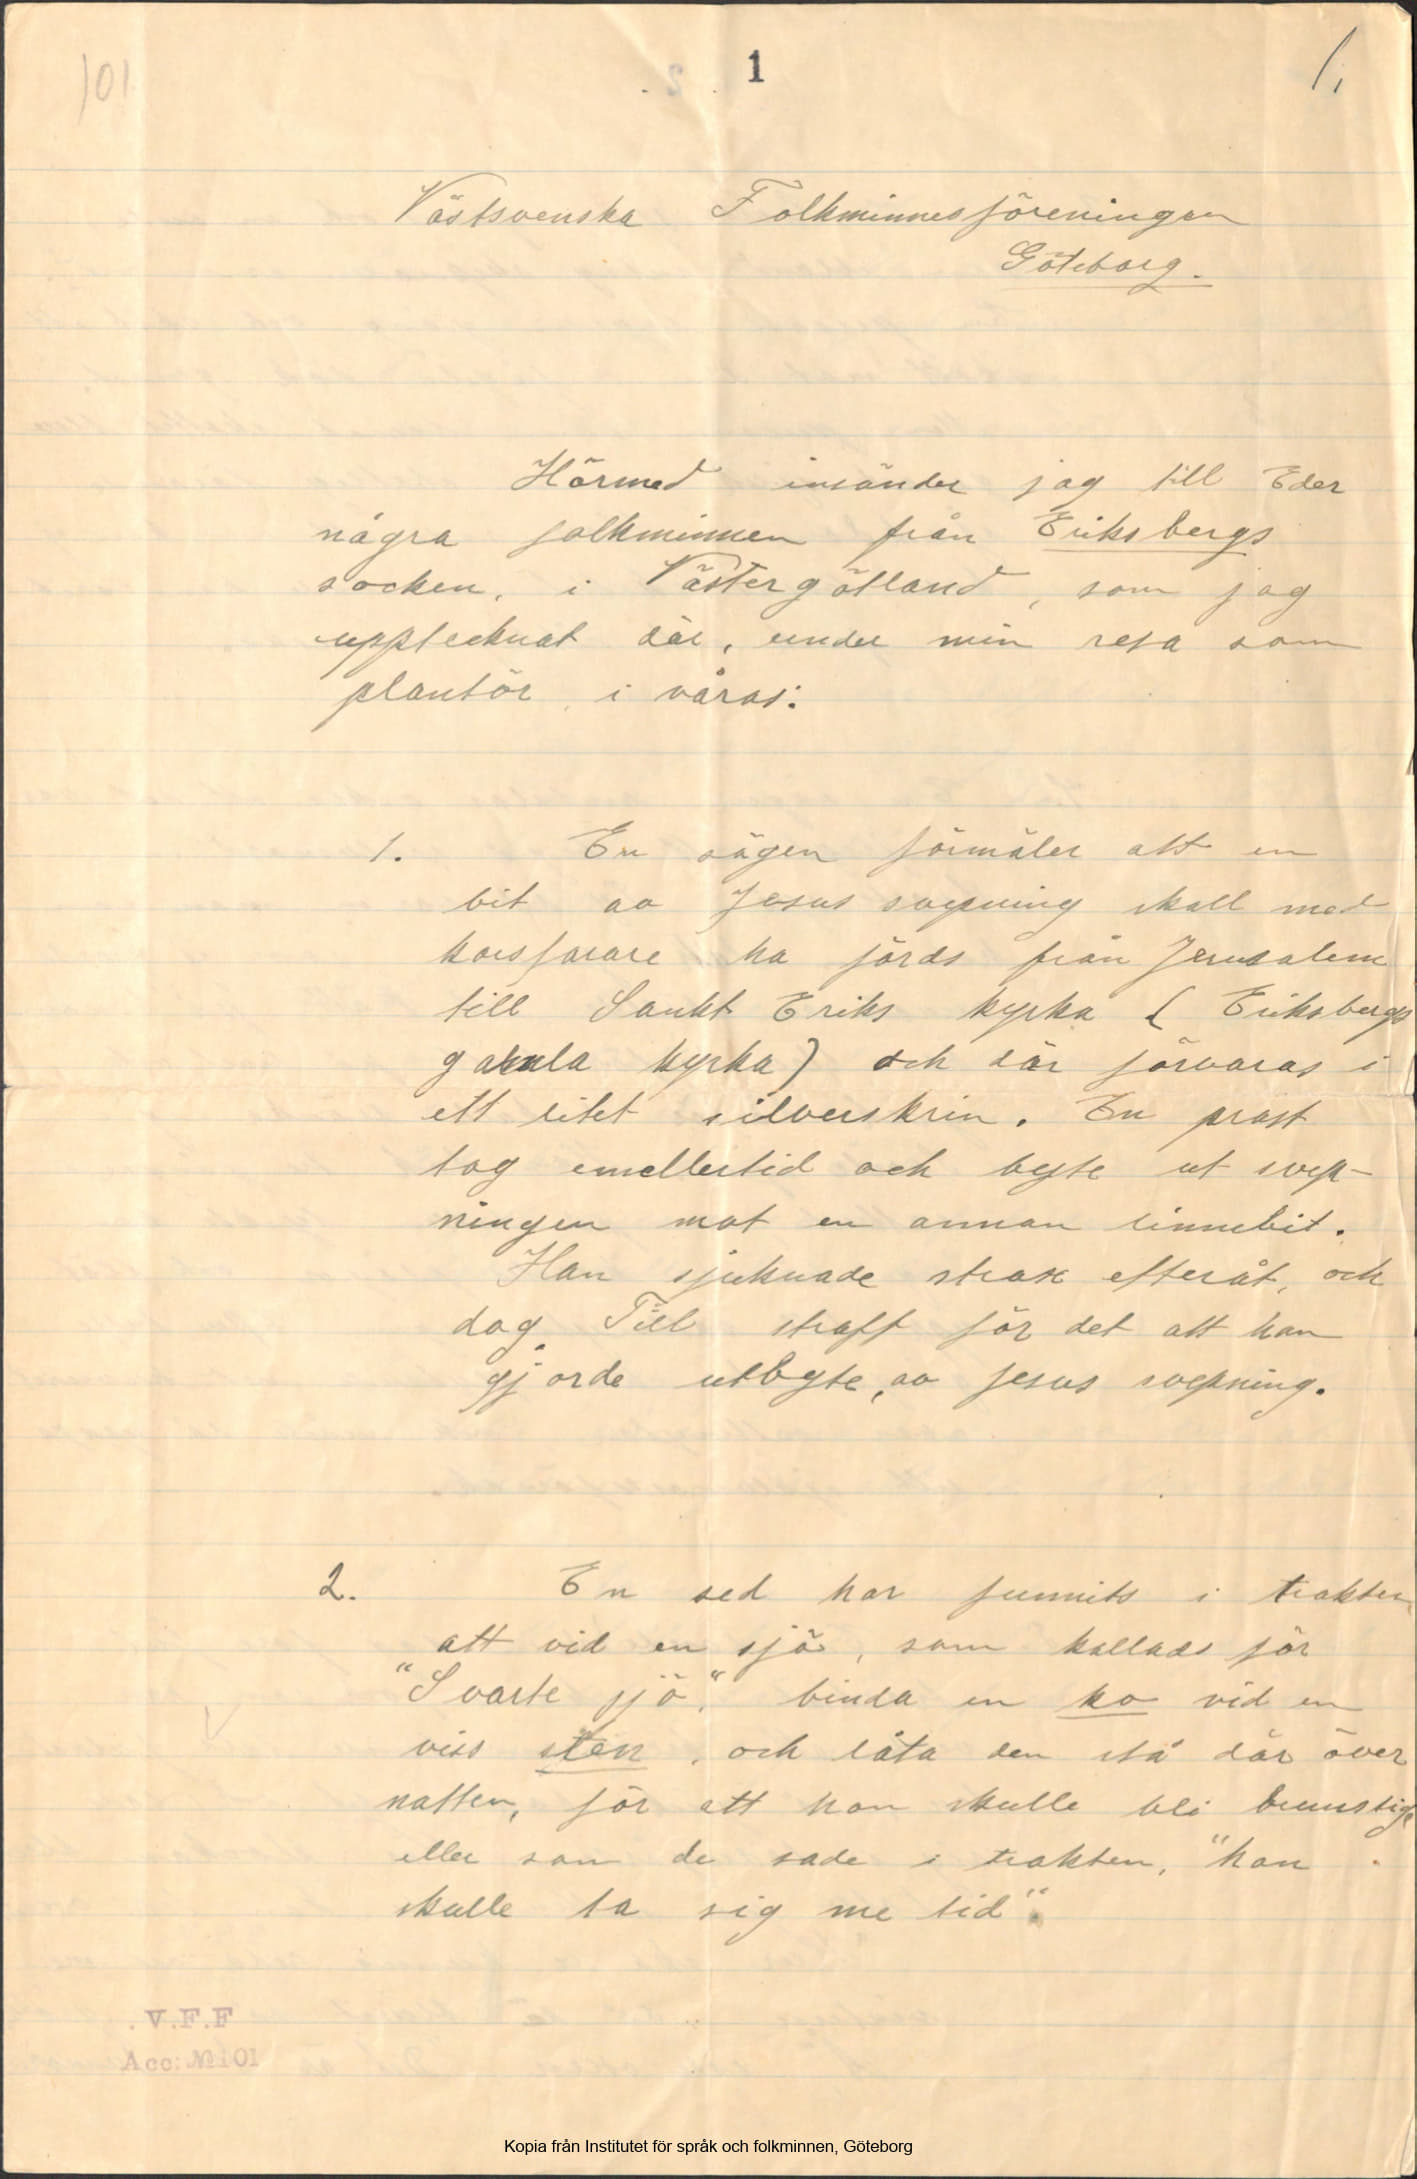 101
1
1,
Västsvenska Folkminnesföreningen
Göteborg.
Härmed insänder jag till Eder
några folkminnen från Eriksbergs
socken, i Västergötland, som jag
upptecknat där, under min resa som
plantör, i våras:
1. En sägen förmäler att en
bit av Jesus svepning skall med
korsfarare ha förds från Jerusalem
till Sankt Eriks kyrka ( Eriksbergs
gamla kyrka) och där förvaras i
ett litet silverskrin. En präst
tog emellertid och byte ut svep-
ningen mot en annan linnebit.
Han sjuknade strax efteråt, och
dog. Till straff för det att han
gjorde utbyte, av Jesus svepning.
2. En sed har funnits i trakten
att vid en sjö, som kallads för
"Svarte sjö", binda en ko vid en
viss sten, och låta den stå där över
natten, för att hon skulle bli brunstig,
eller som de sade i trakten, "hon
skulle ta sig me tid".
V.F.F
Acc: № 101
Kopia från Institutet för språk och folkminnen, Göteborg